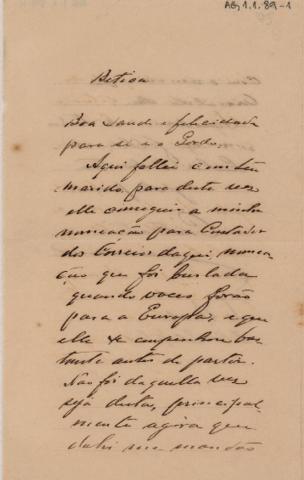 AG1.1.89-1
Betica
Boa Saude e felicidade
para si e o Pedro.
Aqui fallei com teu
marido para desta vez
elle conseguir a minha
nomeação para Contador
dos Correios daqui, nomea
ção que foi burlada
quando voces forão
para a Europa, e que
elle se empenhou bas
tante antes de partir.
Não foi daquella vez
seja desta, principal
mente agora que
dahi me mandão